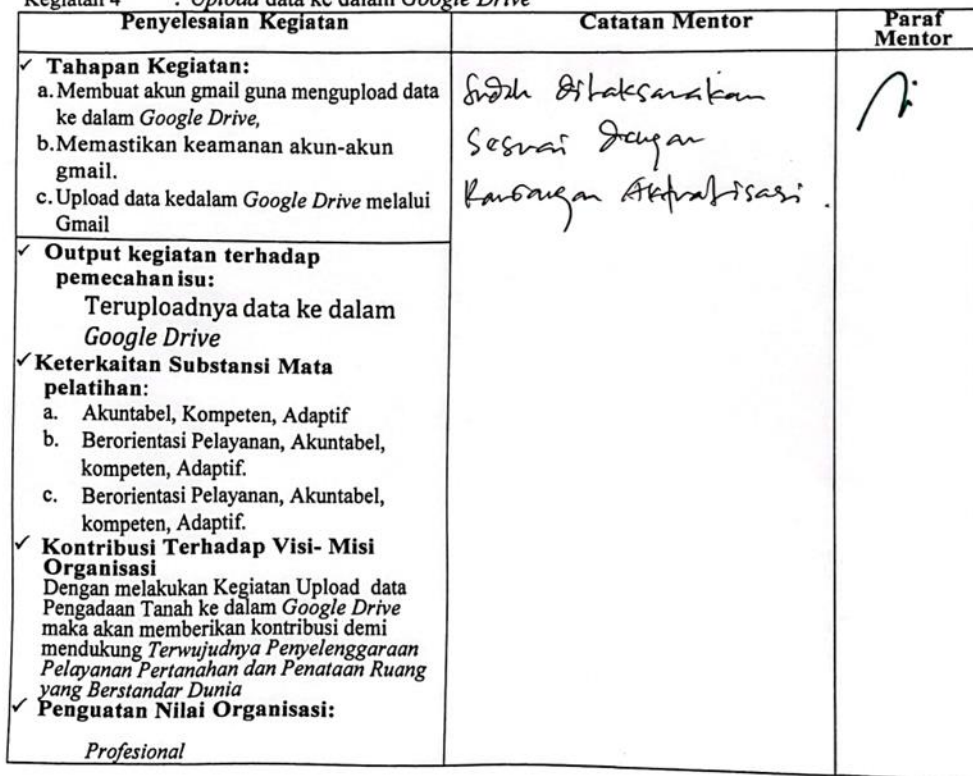 Kegiatan 4 : Upload data ke dalam Google Drive
Penyelesaian Kegiatan
Catatan Mentor
Paraf
Mentor
✓ Tahapan Kegiatan:
a. Membuat akun gmail guna mengupload data
ke dalam Google Drive,
b.Memastikan keamanan akun-akun
gmail.
c. Upload data kedalam Google Drive melalui
Gmail
✓ Output kegiatan terhadap
pemecahan isu:
Teruploadnya data ke dalam
Google Drive
✓ Keterkaitan Substansi Mata
pelatihan:
a. Akuntabel, Kompeten, Adaptif
b. Berorientasi Pelayanan, Akuntabel,
kompeten, Adaptif.
c. Berorientasi Pelayanan, Akuntabel,
kompeten, Adaptif.
✓ Kontribusi Terhadap Visi- Misi
Organisasi
Dengan melakukan Kegiatan Upload data
Pengadaan Tanah ke dalam Google Drive
maka akan memberikan kontribusi demi
mendukung Terwujudnya Penyelenggaraan
Pelayanan Pertanahan dan Penataan Ruang
yang Berstandar Dunia
✓ Penguatan Nilai Organisasi:
Profesional
Sudah Dilaksanakan
Sesuai Dengan
Rancangan Aktualisasi.